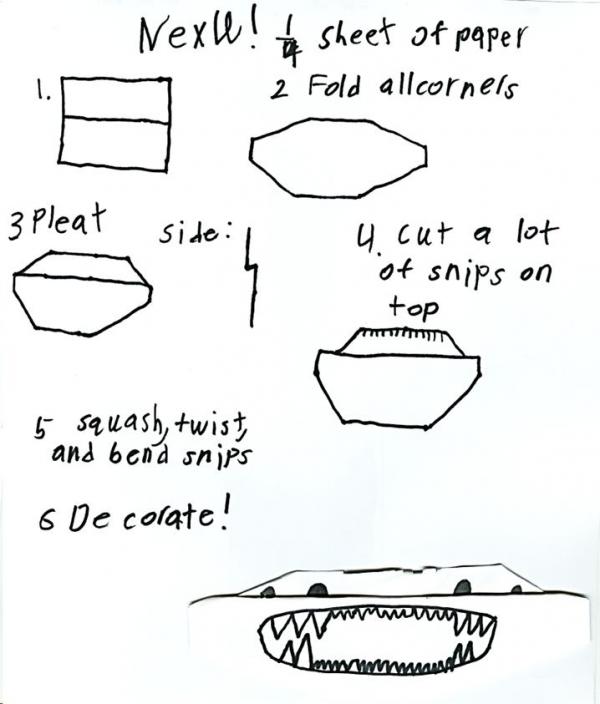 Nexu! 1/4 sheet of paper
1.
2 Fold all corners
3 Pleat
side:
4. cut a lot
of snips on
top
5 squash, twist,
and bend snips
6 Decorate!